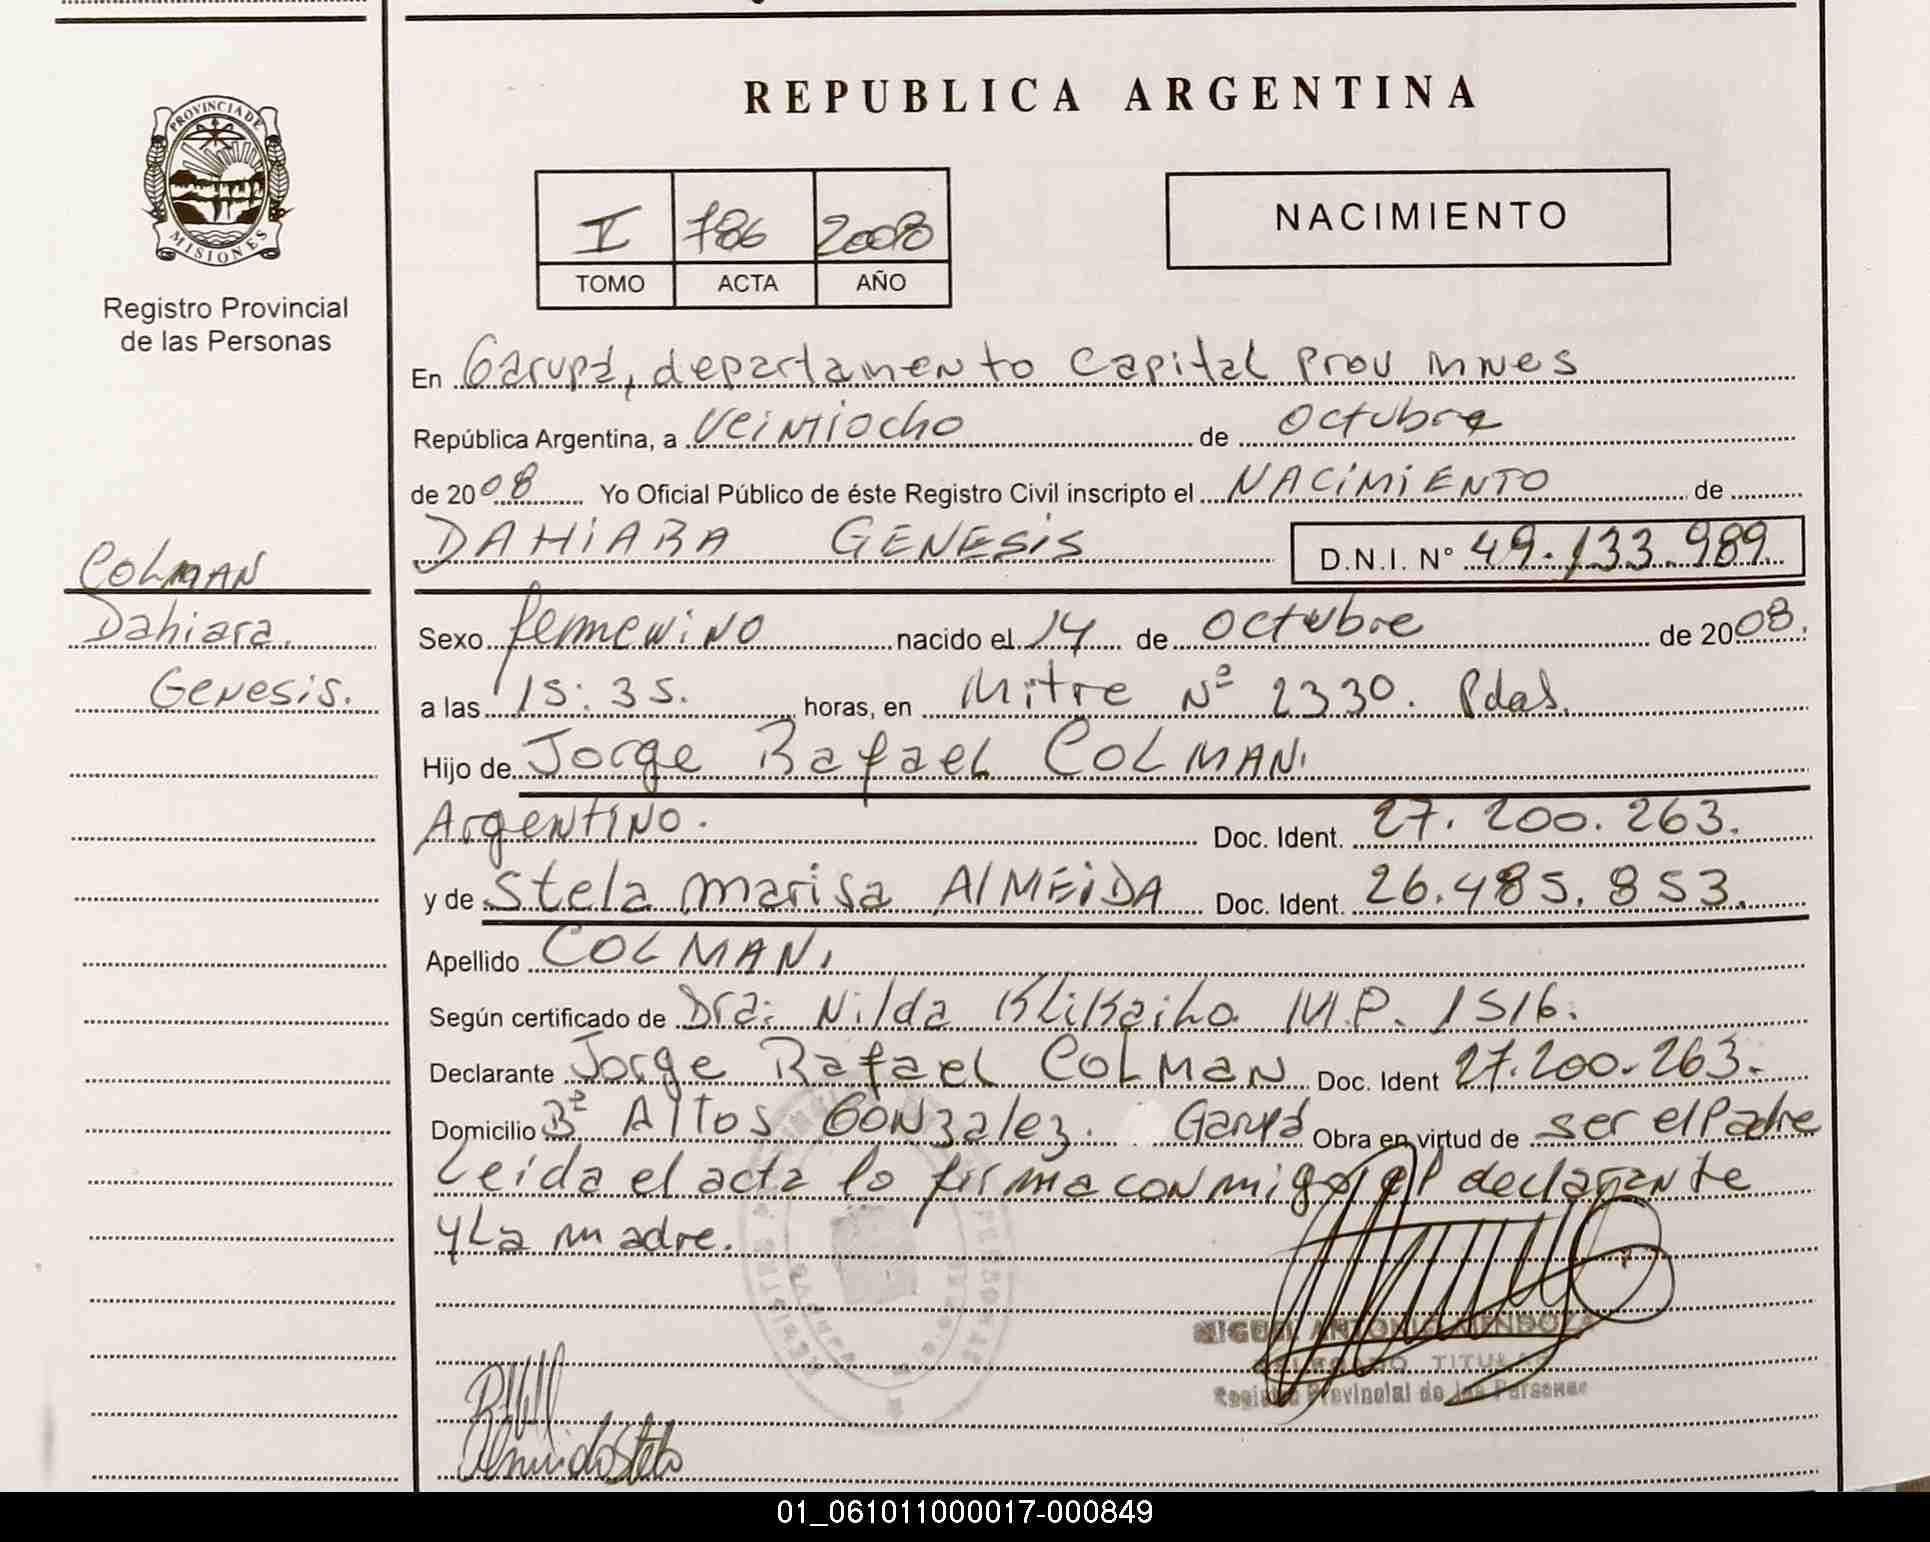 PROVINCIA DE
MISIONES
Registro Provincial
de las Personas
COLMAN
Dahiara.
Genesis.
REPUBLICA ARGENTINA
I 786 2008
TOMO ACTA AÑO
NACIMIENTO
En Garupá, departamento Capital Prov mnes
República Argentina, a veintiocho de Octubre
de 2008 Yo Oficial Público de éste Registro Civil inscripto el NACIMIENTO de
DAHIARA GENESIS D.N.I. N° 49.133.989
Sexo femenino nacido el 14 de Octubre de 2008.
a las 15:35. horas, en Mitre Nº 2330. Pdas.
Hijo de Jorge Rafael COLMAN.
Argentino. Doc. Ident. 27.200.263.
y de Stela marisa AlMEiDA Doc. Ident. 26.485.853.
Apellido COLMAN.
Según certificado de Dra: Nilda M.P. 1516.
Declarante Jorge Rafael COLMAN Doc. Ident 27.200.263.
Domicilio Bº Altos Gonzalez. Garupá Obra en virtud de ser el Padre
Leida el acta lo firma conmigo el declarante
y La madre.
MIGUEL ANTONIO MENDOZA
DELEGADO TITULAR
Registro Provincial de las Personas
01_061011000017-000849